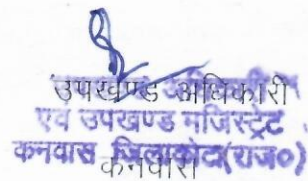 उपखण्ड अधिकारी
एवं उपखण्ड मजिस्ट्रेट
कनवास जिलाकोटा(राज०)
कनवास